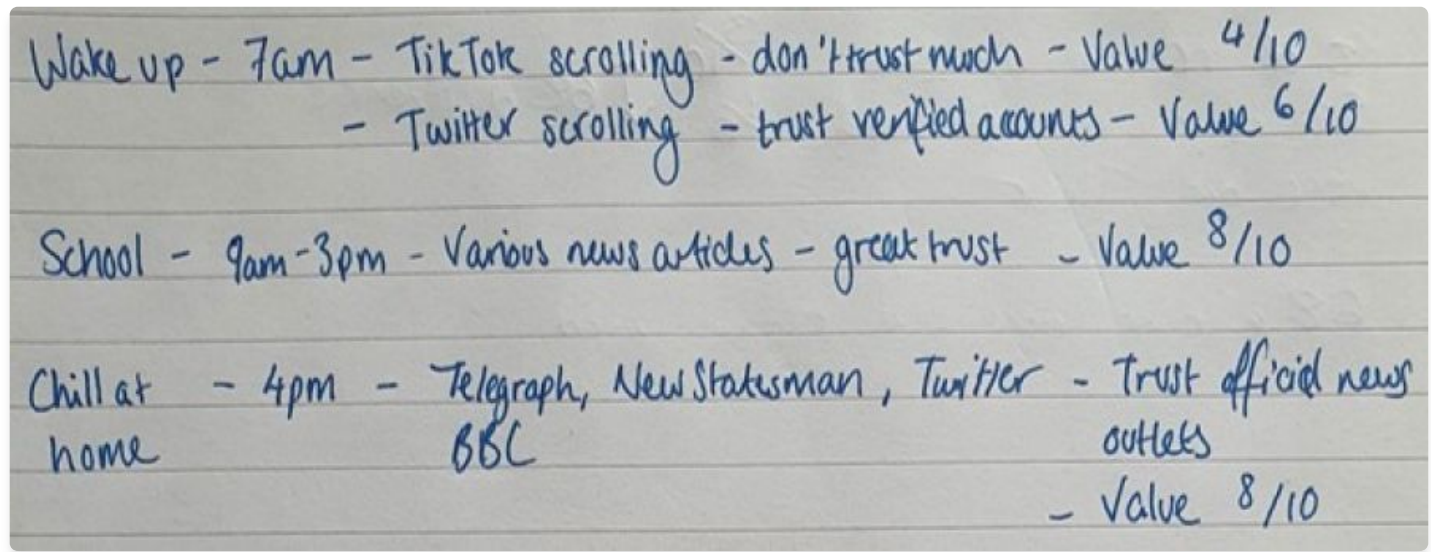 Wake up - 7am - TikTok scrolling - don't trust much - Value 4/10
- Twitter scrolling - trust verified accounts - Value 6/10
School - 9am-3pm - Various news articles - great trust - Value 8/10
Chill at - 4pm - Telegraph, New Statesman, Twitter - Trust official news
home BBC outlets
- Value 8/10